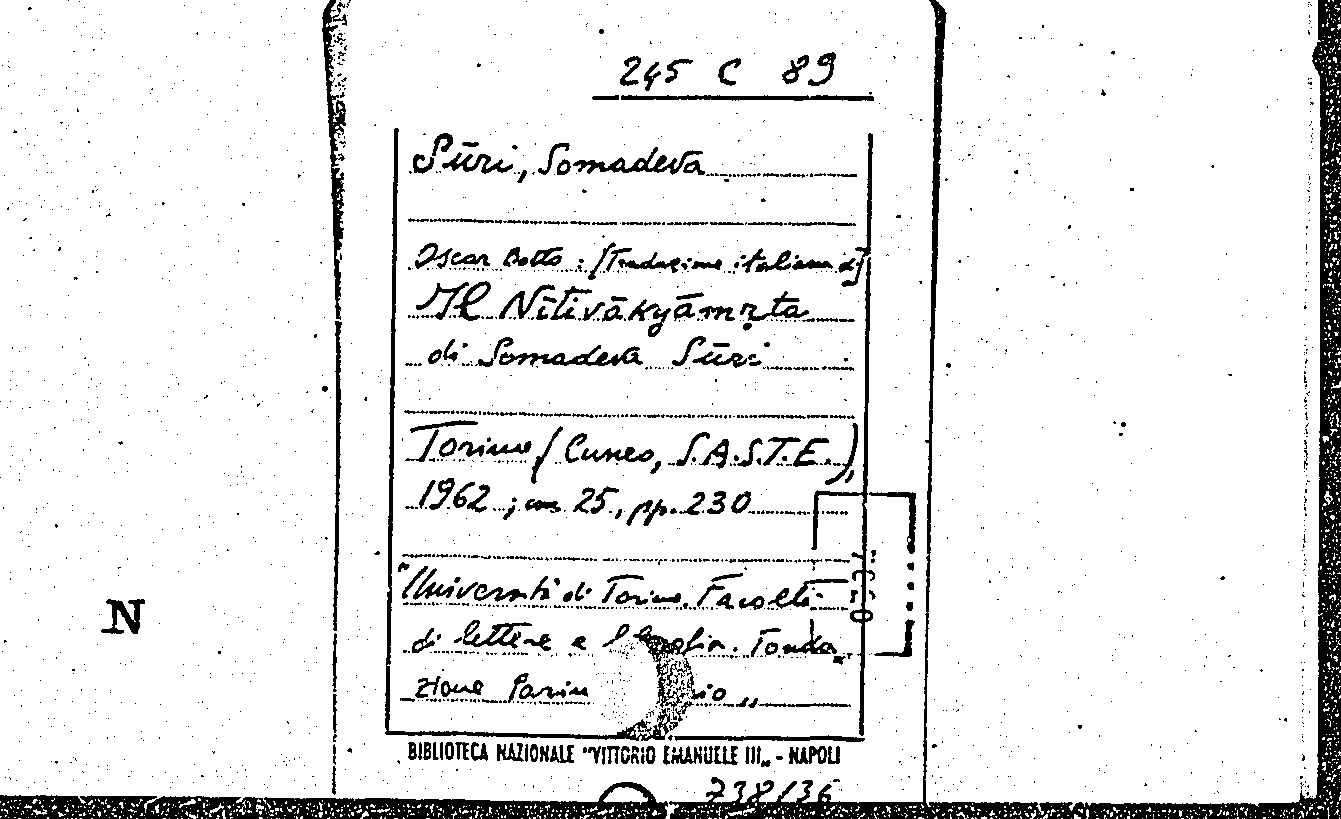 245 C 89
Sūri, Somadeva
Oscar Botto : [Traduzione italiana di]
Il Nītivākyāmṛta
di Somadeva Sūri
Torino (Cuneo, S.A.S.T.E.),
1962 ; cm 25, pp. 230
"Università di Torino. Facoltà
di lettere e filosofia. Fonda
zione Parin
N
BIBLIOTECA NAZIONALE "VITTORIO EMANUELE III„ - NAPOLI
738136